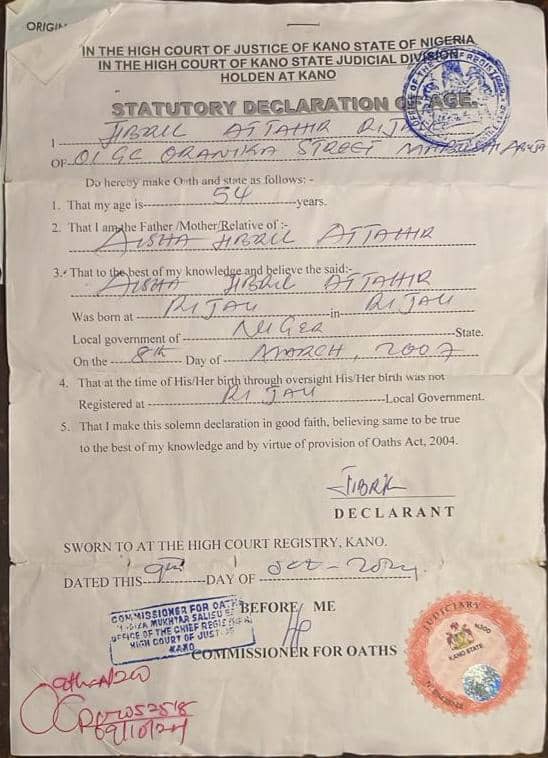 ORIGIN
IN THE HIGH COURT OF JUSTICE OF KANO STATE OF NIGERIA
IN THE HIGH COURT OF KANO STATE JUDICIAL DIVISION
HOLDEN AT KANO
STATUTORY DECLARATION OF AGE.
I JIBRIL ATTAHIR RIJAU
OF STREET
Do hereby make Oath and state as follows: -
1. That my age is 54 years.
2. That I am the Father /Mother/Relative of :-
AISHA JIBRIL ATTAHIR
3. That to the best of my knowledge and believe the said:-
AISHA JIBRIL ATTAHIR
Was born at RIJAU in RIJAU
Local government of NIGER State.
On the 8th Day of MARCH, 2007
4. That at the time of His/Her birth through oversight His/Her birth was not
Registered at RIJAU Local Government.
5. That I make this solemn declaration in good faith, believing same to be true
to the best of my knowledge and by virtue of provision of Oaths Act, 2004.
JIBRIL
DECLARANT
SWORN TO AT THE HIGH COURT REGISTRY, KANO.
DATED THIS 9th DAY OF Oct - 2024
BEFORE ME
COMMISSIONER FOR OATHS
COMMISSIONER FOR OATHS
MUKHTAR SALISU
OFFICE OF THE CHIEF REGISTRAR
HIGH COURT OF JUSTICE
KANO
JUDICIARY
N200
KANO STATE
09/10/24